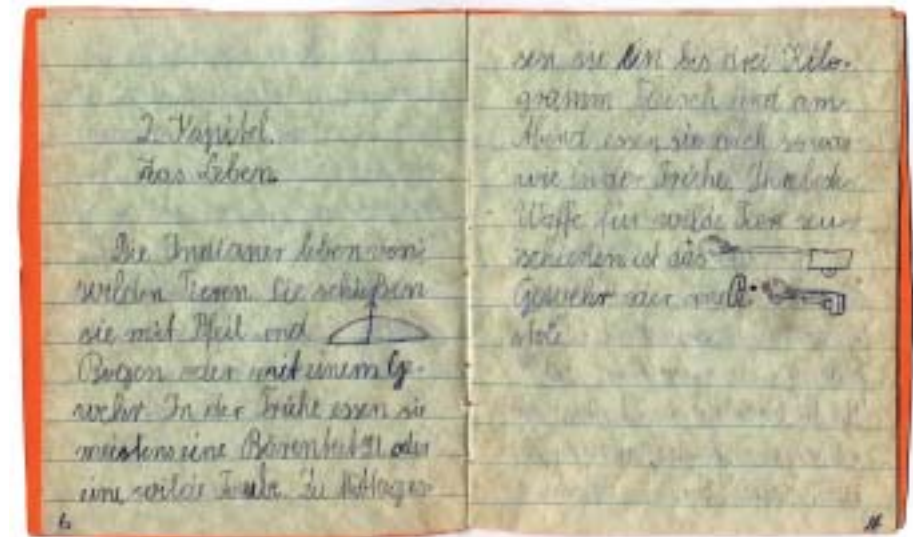 2. Kapitel.
Das Leben.
Die Indianer leben von
wilden Tieren. Sie schießen
sie mit Pfeil und
Bogen oder mit einem Ge-
wehr. In der Frühe essen sie
meistens eine Bärentatze oder
eine wilde Zu Mittages-
6
sen sie ein bis drei Kilo-
gramm Fleisch und am
Abend essen sie auch sowas
wie in der Frühe. Ihre
Waffe für wilde Tiere zu
schießen ist das
Gewehr oder